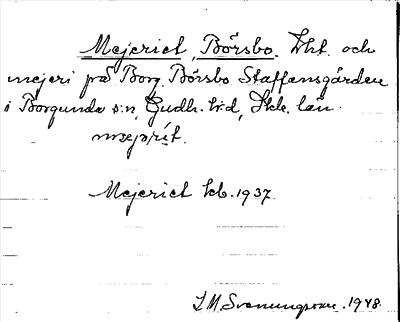 Mejeriet, Börsbo. Lht. och
mejeri på Borg. Börsbo Staffansgården
i Borgunda s:n, Gudh. h:d, Skb. län.
Mejeriet 1937.
I.M. Svenungsson. 1948.